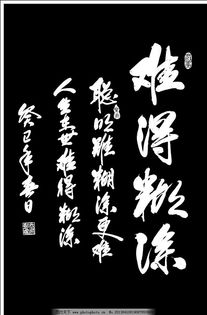 难得糊涂
聪明难糊涂更难
人生在世难得糊涂
癸巳年春日